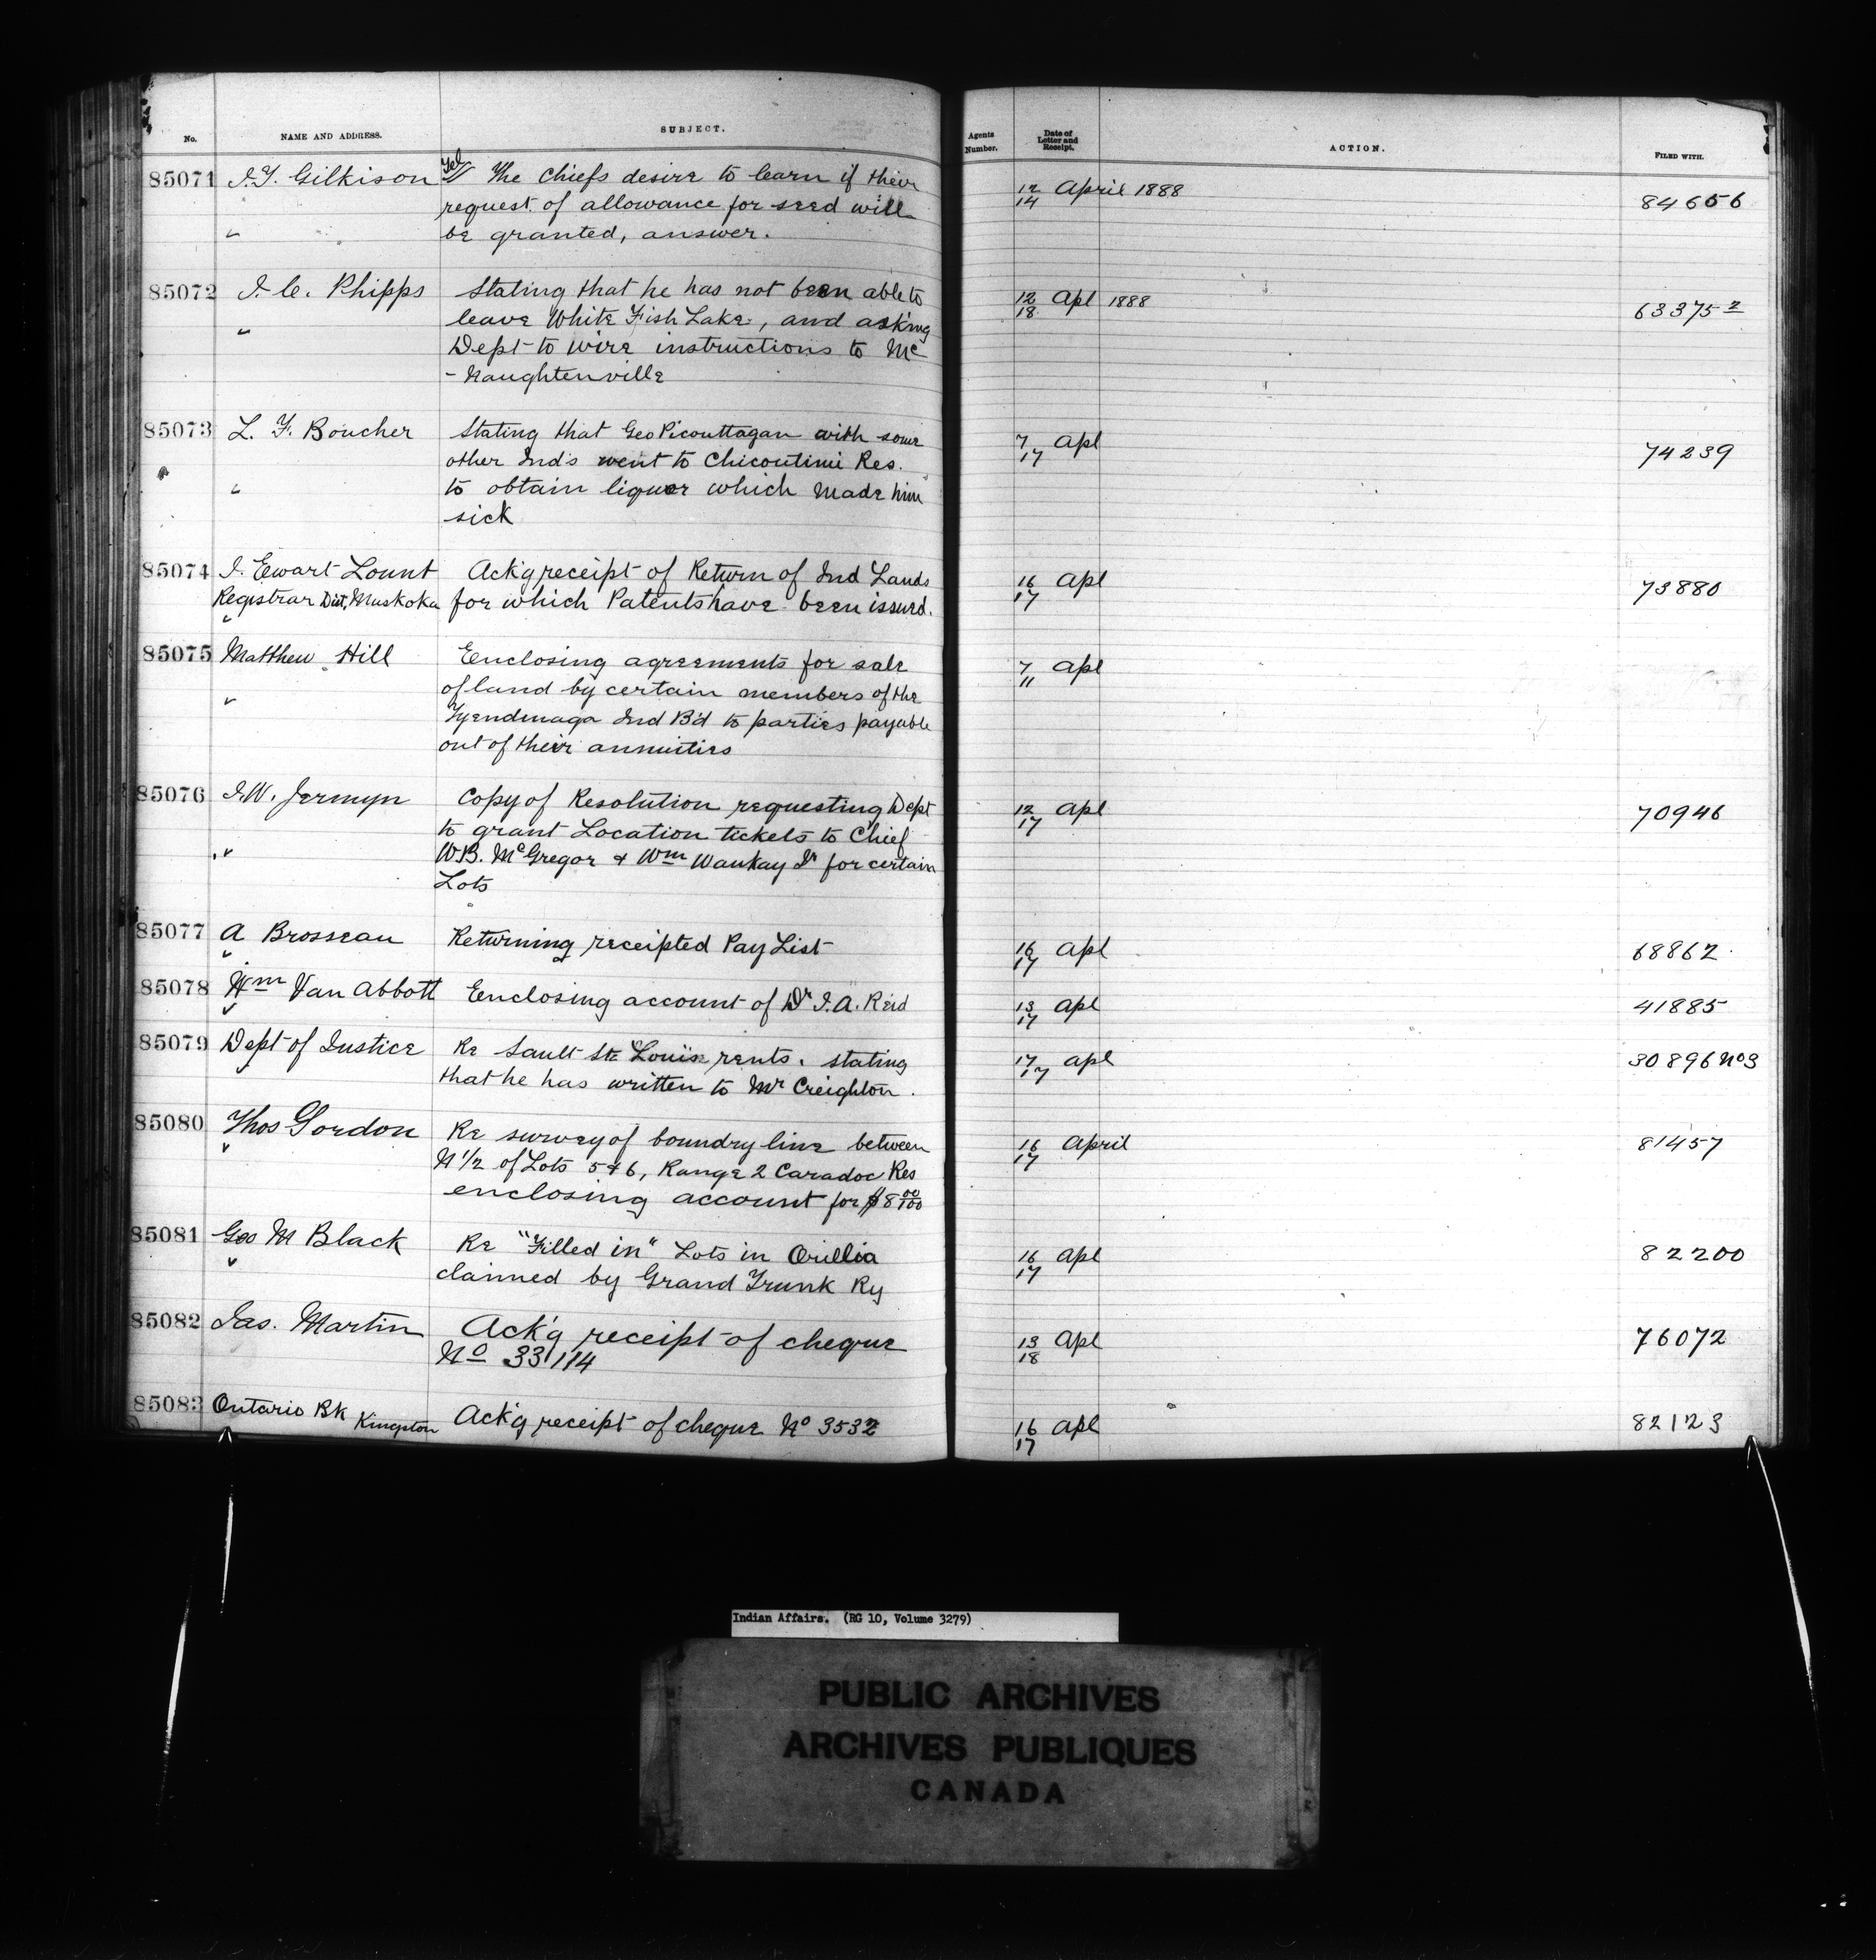 No. NAME AND ADDRESS. SUBJECT. Agents Number. Date of Letter and Receipt. ACTION. FILED WITH.
85071 J.T. Gilkison Tel The Chiefs desire to learn if their 12/14 April 1888 84656
request of allowance for seed will
be granted, answer.
85072 J.C. Phipps Stating that he has not been able to 12/18 Apl 1888 63375-2
leave White Fish Lake, and asking
Dept to wire instructions to Mc
-Naughtenville
85073 L. F. Boucher Stating that Geo Picouttagan with some 7/17 Apl 74239
other Inds went to Chicoutimi Res.
to obtain liquor which made him
sick
85074 J. Ewart Lount Ack'g receipt of Return of Ind Lands 16/17 Apl 73880
Registrar Dist, Muskoka for which Patents have been issued.
85075 Matthew Hill Eenclosing agreements for sale 7/11 Apl
of land by certain members of the
Tyendinaga Ind B'd to parties payable
out of their annuities
85076 J.W. Jermyn Copy of Resolution requesting Dept 12/17 Apl 70946
to grant Location tickets to Chief
W.B. McGregor & Wm Waukay Jr for certain
Lots
85077 A Brosseau Returning receipted Pay List 16/17 Apl 68862
85078 Wm Van Abbott Eenclosing account of Dr J.A. Reid 13/17 Apl 41885
85079 Dept of Justice Re Sault Ste Louis rents. stating 17/17 Apl 30896 No3
that he has written to Mr Creighton.
85080 Thos Gordon Re survey of boundry line between 16/17 April 81457
N 1/2 of Lots 5 & 6, Range 2 Caradoc Res
enclosing account for $8 00/100
85081 Geo M Black Re "Filled in" Lots in Orillia 16/17 Apl 82200
claimed by Grand Trunk Ry
85082 Jas. Martin Ack'g receipt of cheque 13/18 Apl 76072
No 33114
85083 Ontario Bk Kingston Ack'g receipt of cheque No 3532 16/17 Apl 82123
Indian Affairs. (RG 10, Volume 3279)
PUBLIC ARCHIVES
ARCHIVES PUBLIQUES
CANADA